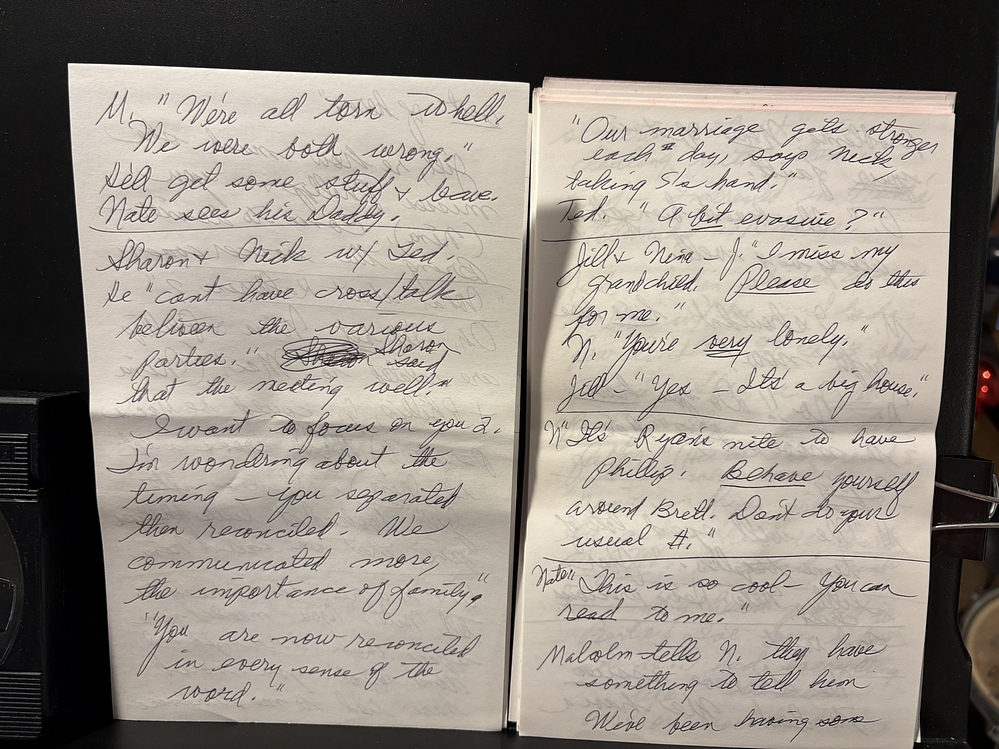 M. "We're all torn to hell.
We were both wrong."
He'll get some stuff & leave.
Nate sees his Daddy.
Sharon & Nick w/ Ted.
He "cant have cross/talk
between the various
parties." Sharon said
that the meeting well."
I want to focus on you 2.
I'm wondering about the
timing – you separated
then reconciled. We
communicated more,
the importance of family."
"You are now reconciled
in every sense of the
word."
"Our marriage gets stronger
each day, says Nick,
taking S's hand."
Ted. "A bit evasive?"
Jill & Nina – J. "I miss my
grandchild. Please do this
for me."
N. "You're very lonely."
Jill – "Yes – It's a big house."
N "It's Ryan's nite to have
Phillip. Behave yourself
around Brett. Don't do your
usual #."
Nate "This is so cool – You can
read to me."
Malcolm tells N. they have
something to tell him
We've been having some